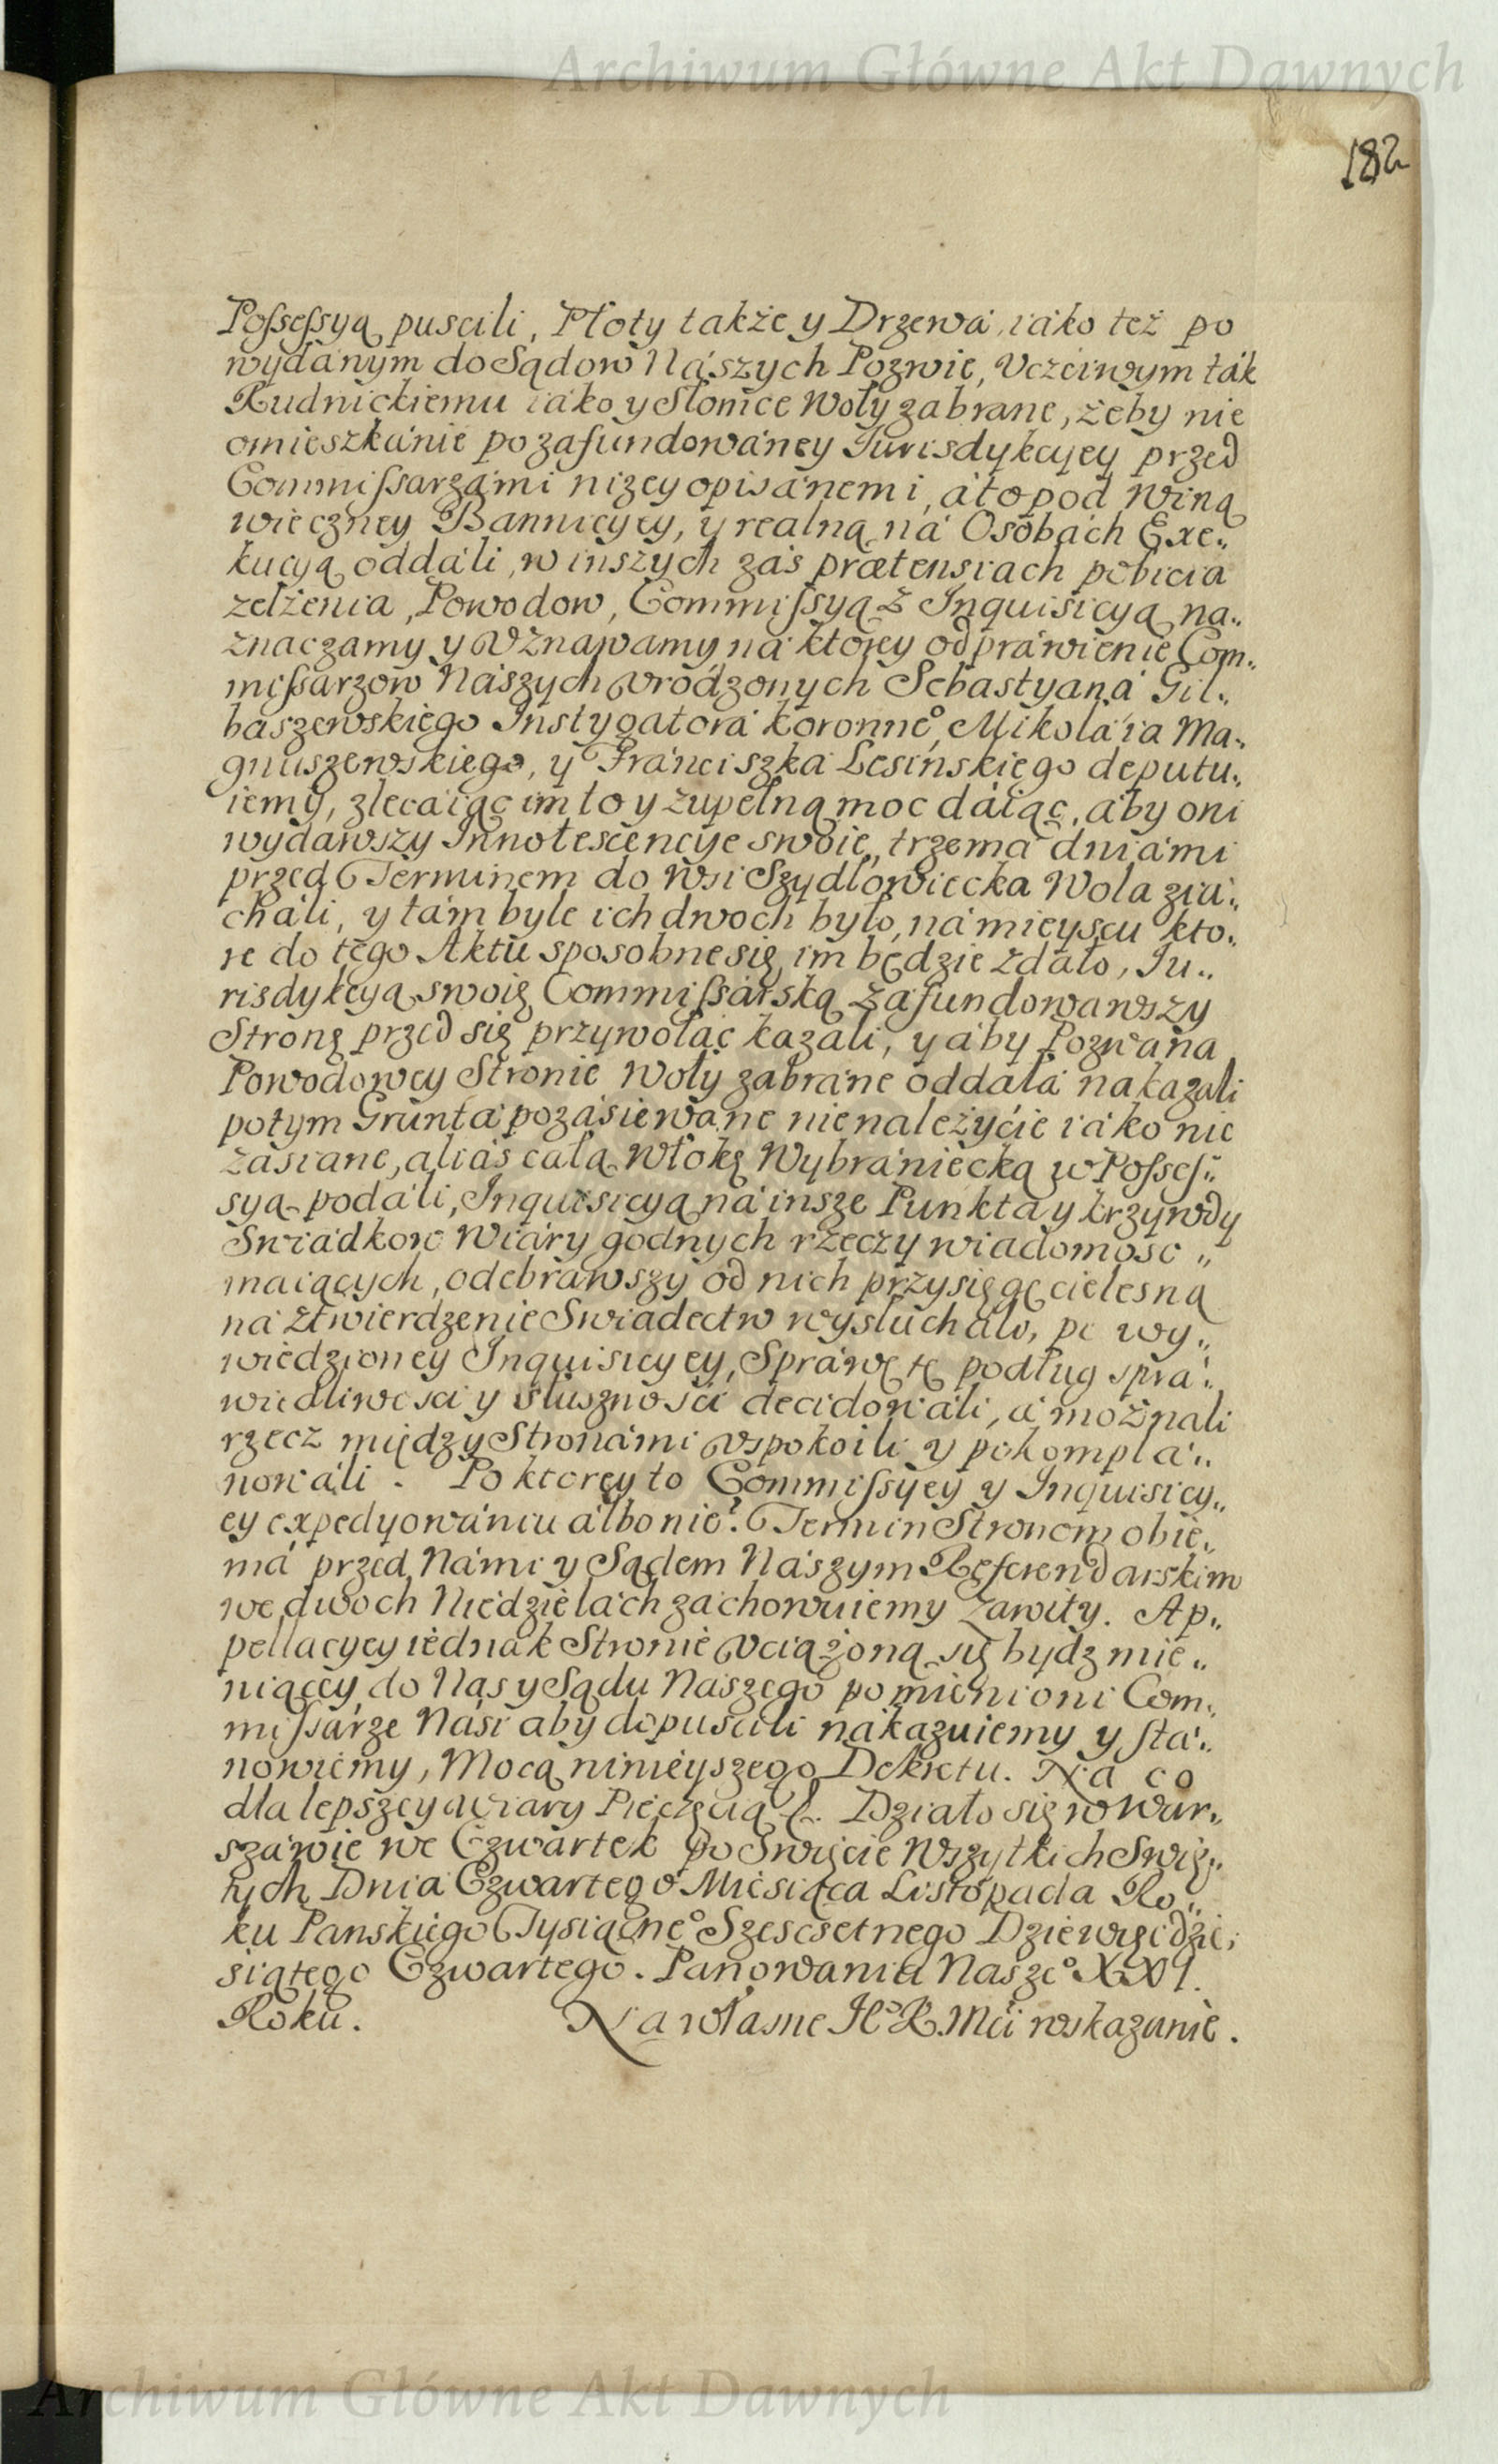 Archiwum Główne Akt Dawnych
182
Possessyą puscili, Płoty także y Drzewá, iáko też po
wydánym do Sądow Nászych Pozwie, Vczciwym ták
Rudnickiemu iáko y Słonice Woły zabrane, żeby nie
omieszkánie po zafundowáney Jurisdykcyey przed
Commissarzámi niżey opisánemi, á to pod winą
wieczney Bannicyey, y realną ná Osobách Exe„
kucyą oddáli, w inszych záś prætensiach pobicia
zelżenia, Powodow, Commissyą z Inquisicyą na„
znaczamy y vznawamy ná ktorey odpráwienie Com„
missarzow Nászych vrodzonych Sebastyaná Gil„
baszewskiego Instygatorá koronne°, Mikoláia Ma„
gnuszewskiego, y Fránciszka Lesińskiego deputu„
iemy, zlecáiąc im to y zupełną moc dáiąc, áby oni
wydawszy Innotescencye swoie, trzemá dniámi
przed Terminem do Wsi Szydłowiecka Wola ziá„
cháli, y tám byle ich dwoch było, ná mieyscu kto„
re do tego Aktu sposobne się im będzie zdało, Ju„
risdykcyą swoię Commissárską zafundowawszy
Stronę przed się przywołáć kazáli, y áby Pozwána
Powodowey Stronie Woły zabráne oddáłá nakazáli
potym Gruntá pozásiewáne nienależyćie iáko nie
zasiane, aliás cáłą Włokę Wybrániecką w Posses„
syą podáli, Inquisicyą ná insze Punkta y krzywdy
Swiádkow Wiáry godnych rzeczy wiadomość „
maiących, odebrawszy od nich przysięgę cielesną
ná ztwierdzenie Swiadectw wysłucháli, po wy„
wiedzioney Inquisicyey, Spráwę tę podług sprá„
wiedliwosci y słusznosći decidowáli, á możnáli
rzecz między Stronámi vspokoili y pokomplá„
nowáli. Po ktorey to Commissyey y Inquisicy„
ey expedyowániu álbo nie? Termin Stronom obie„
má przed Námi y Sądem Nászym Referendarskim
we dwoch Niedzielách zachowuiemy Zawity. Ap„
pellacyey iednák Stronie vciążoną się bydz mie„
niącey do Nás y Sądu Naszego pomienioni Com„
missárze Nási aby dopuscili nákazuiemy y stá„
nowiemy, Mocą ninieyszego Dekretu. Ná co
dla lepszey wiary Pieczęcią &. Dziáło się w War„
száwie we Czwártek po Swięcie Wszytkich Swię„
tych Dniá Czwartego Miesiąca Listopada Ro„
ku Pańskiego Tysiącne° Szescsetnego Dziewięcdzie„
siątego Czwartego. Panowania Nasze° XXI.
Roku. Na własne Je° K. Mći roskazanie.
Archiwum Główne Akt Dawnych